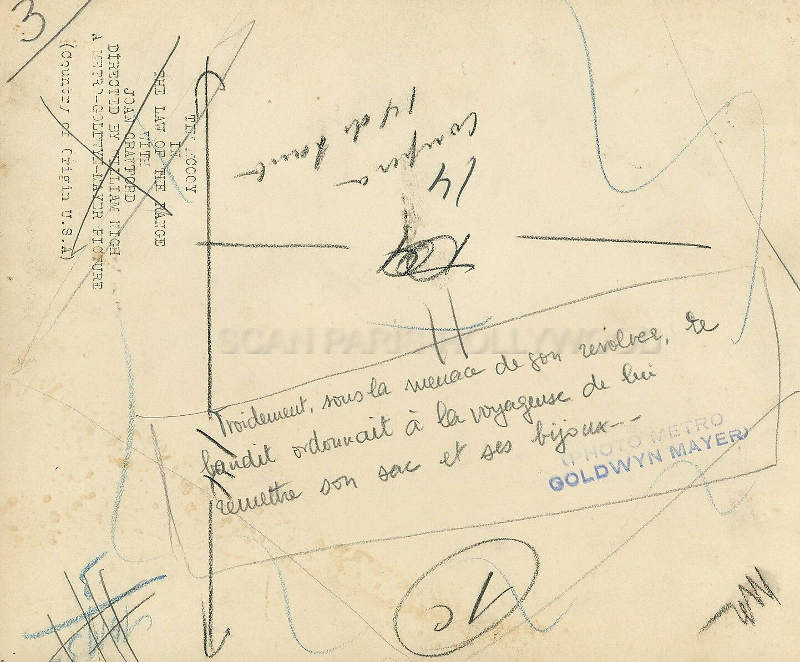 3
TIM McCOY
IN
THE LAW OF THE RANGE
WITH
JOAN CRAWFORD
DIRECTED BY WILLIAM NIGH
A METRO-GOLDWYN-MAYER PICTURE
(Country of Origin U.S.A)
14
SCAN PARIS HOLLYWOOD
Froidement, sous la menace de son revolver, le
bandit ordonnait à la voyageuse de lui
remettre son sac et ses bijoux--
(PHOTO METRO
GOLDWYN MAYER)